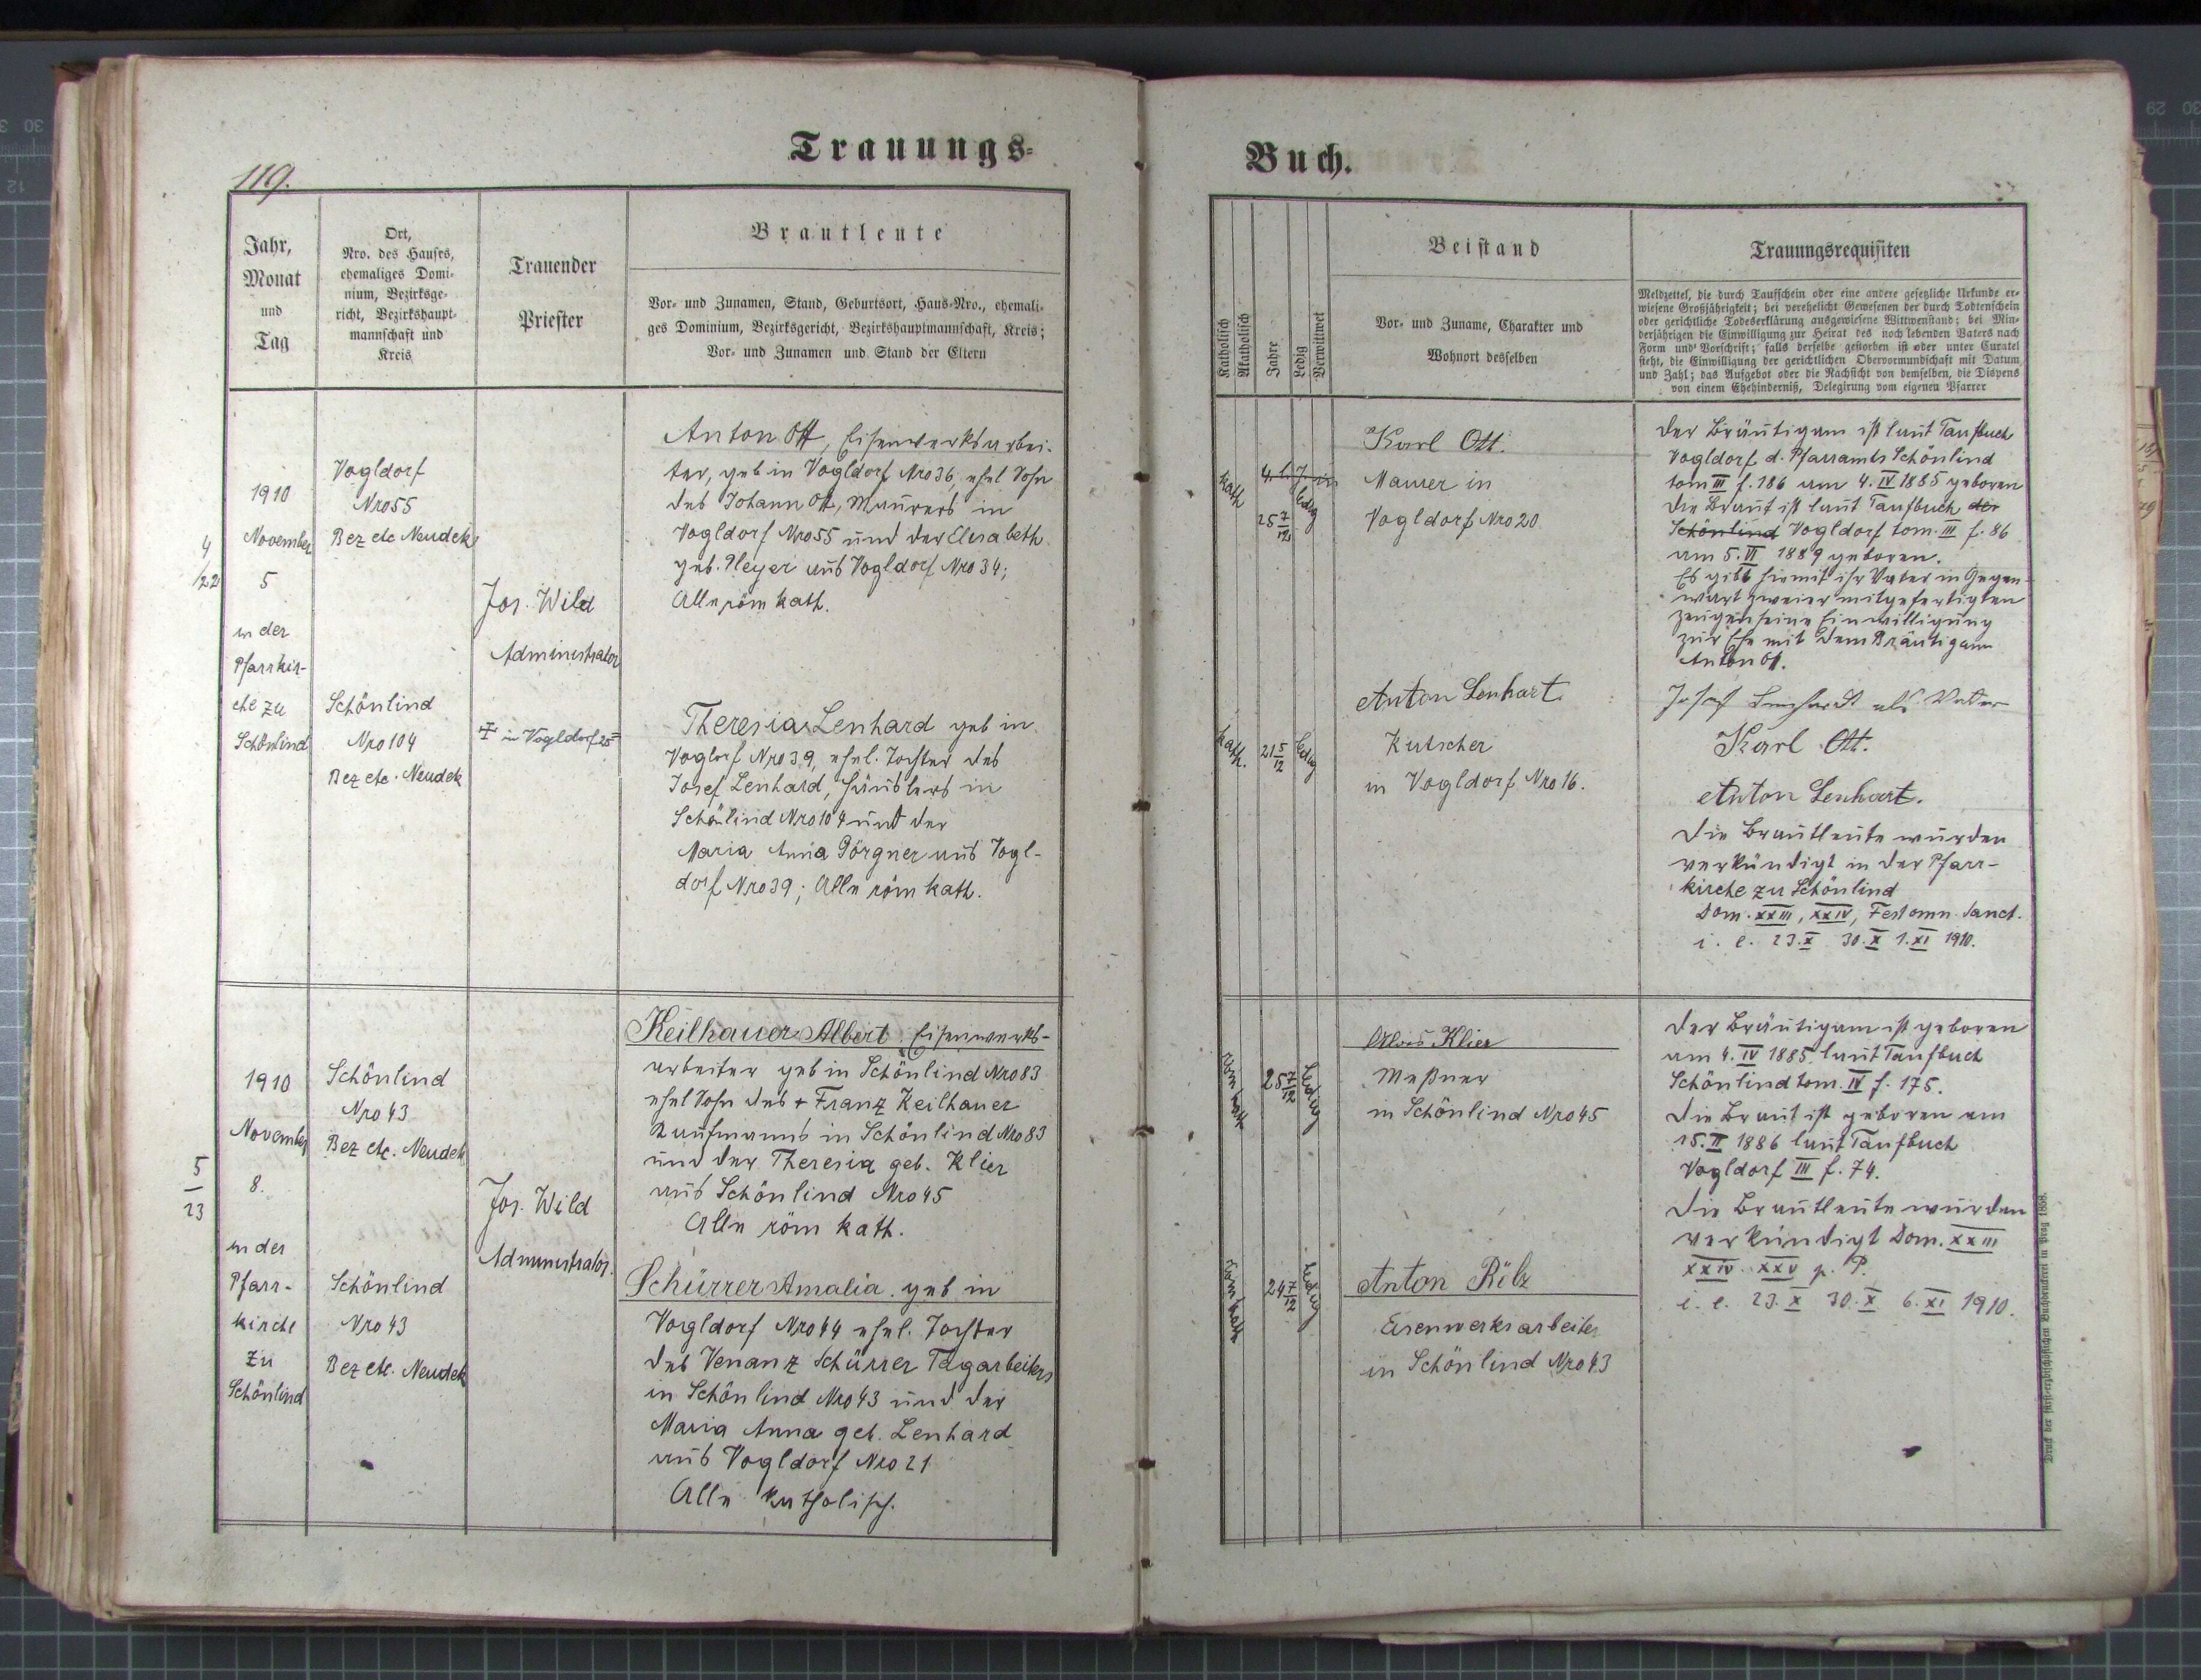 Trauungs=
119.
Jahr,
Monat
und
Tag
Ort,
Nro. des Hauses,
ehemaliges Domi-
nium, Bezirksge-
richt, Bezirkshaupt-
mannschaft und
Kreis
Trauender
Priester
Brautleute
Vor- und Zunamen, Stand, Geburtsort, Haus-Nro., ehemali-
ges Dominium, Bezirksgericht, Bezirkshauptmannschaft, Kreis;
Vor- und Zunamen und Stand der Eltern
4
/22
1910
November
5
in der
Pfarrkir-
che zu
Schönlind
Vogldorf
Nro 55
Bez etc Neudek
Schönlind
Nro 104
Bez etc. Neudek
Jos. Wild
Administrator
in Vogldorf
Anton Ott, Eisenwerksarbei-
ter, geb in Vogldorf Nro 36, ehel Sohn
des Johann Ott, Maurers in
Vogldorf Nro 55 und der Elisabeth
geb. Heyer aus Vogldorf Nro 34;
Alle röm kath.
Theresia Lenhard geb in
Vogldorf Nro 39, ehel. Tochter des
Josef Lenhard, Häuslers in
Schönlind Nro 104 und der
Maria Anna Pörgner aus Vogl-
dorf Nro 39; Alle röm kath.
5
23
1910
November
8.
in der
Pfarr-
kirche
zu
Schönlind
Schönlind
Nro 43
Bez etc. Neudek
Schönlind
Nro 43
Bez etc. Neudek
Jos. Wild
Administrator.
Keilhauer Albert Eisenwerks-
arbeiter geb in Schönlind Nro 83
ehel Sohn des + Franz Keilhauer
Kaufmanns in Schönlind Nro 83
und der Theresia geb. Klier
aus Schönlind Nro 45
Alle röm kath.
Schürrer Amalia geb in
Vogldorf Nro 44 ehel. Tochter
des Venanz Schürrer Tagarbeiters
in Schönlind Nro 43 und der
Maria Anna geb. Lenhard
aus Vogldorf Nro 21
Alle katholisch.
Buch.
Katholisch
Akatholisch
Jahre
Ledig
Verwittwet
Beistand
Vor- und Zuname, Charakter und
Wohnort desselben
Trauungsrequisiten
Meldzettel, die durch Taufschein oder eine andere gesetzliche Urkunde er-
wiesene Großjährigkeit; bei verehelicht Gewesenen der durch Todtenschein
oder gerichtliche Todeserklärung ausgewiesene Wittwenstand; bei Min-
derjährigen die Einwilligung zur Heirat des noch lebenden Vaters nach
Form und Vorschrift; falls derselbe gestorben ist oder unter Curatel
steht, die Einwilligung der gerichtlichen Obervormundschaft mit Datum
und Zahl; das Aufgebot oder die Nachsicht von demselben, die Dispens
von einem Ehehinderniß, Delegirung vom eigenen Pfarrer
kath
25 7/12
ledig
Karl Ott.
Maurer in
Vogldorf Nro 20
kath.
21 5/12
ledig
Anton Lenhart
Kutscher
in Vogldorf Nro 16.
Der Bräutigam ist laut Taufbuch
Vogldorf d. Pfarramts Schönlind
tom III f. 186 am 4. IV 1885 geboren
Die Braut ist laut Taufbuch der
Schönlind Vogldorf tom. III f. 86
am 5. VI 1889 geboren.
Es gibt hiemit ihr Vater in Gegen-
wart zweier mitgefertigten
Zeugen seine Einwilligung
zur Ehe mit dem Bräutigam
Anton Ott.
Josef Lenhardt als Vater
Karl Ott.
Anton Lenhart.
Die Brautleute wurden
verkündigt in der Pfarr-
kirche zu Schönlind
Dom. XXIII, XXIV, Fest omn. Sanct.
i. e. 23. X 30. X 1. XI 1910.
röm kath
25 7/12
ledig
Alois Klier
Meßner
in Schönlind Nro 45
röm kath
24 7/12
ledig
Anton Rölz
Eisenwerksarbeiter
in Schönlind Nro 43
Der Bräutigam ist geboren
am 4. IV 1885 laut Taufbuch
Schönlind tom. IV f. 175.
Die Braut ist geboren am
15. II 1886 laut Taufbuch
Vogldorf III f. 74.
Die Brautleute wurden
verkündigt Dom. XXIII
XXIV XXV p. P.
i. e. 23. X 30. X 6. XI 1910.
Druck der fürst-erzbischöflichen Buchdruckerei in Prag 1868.